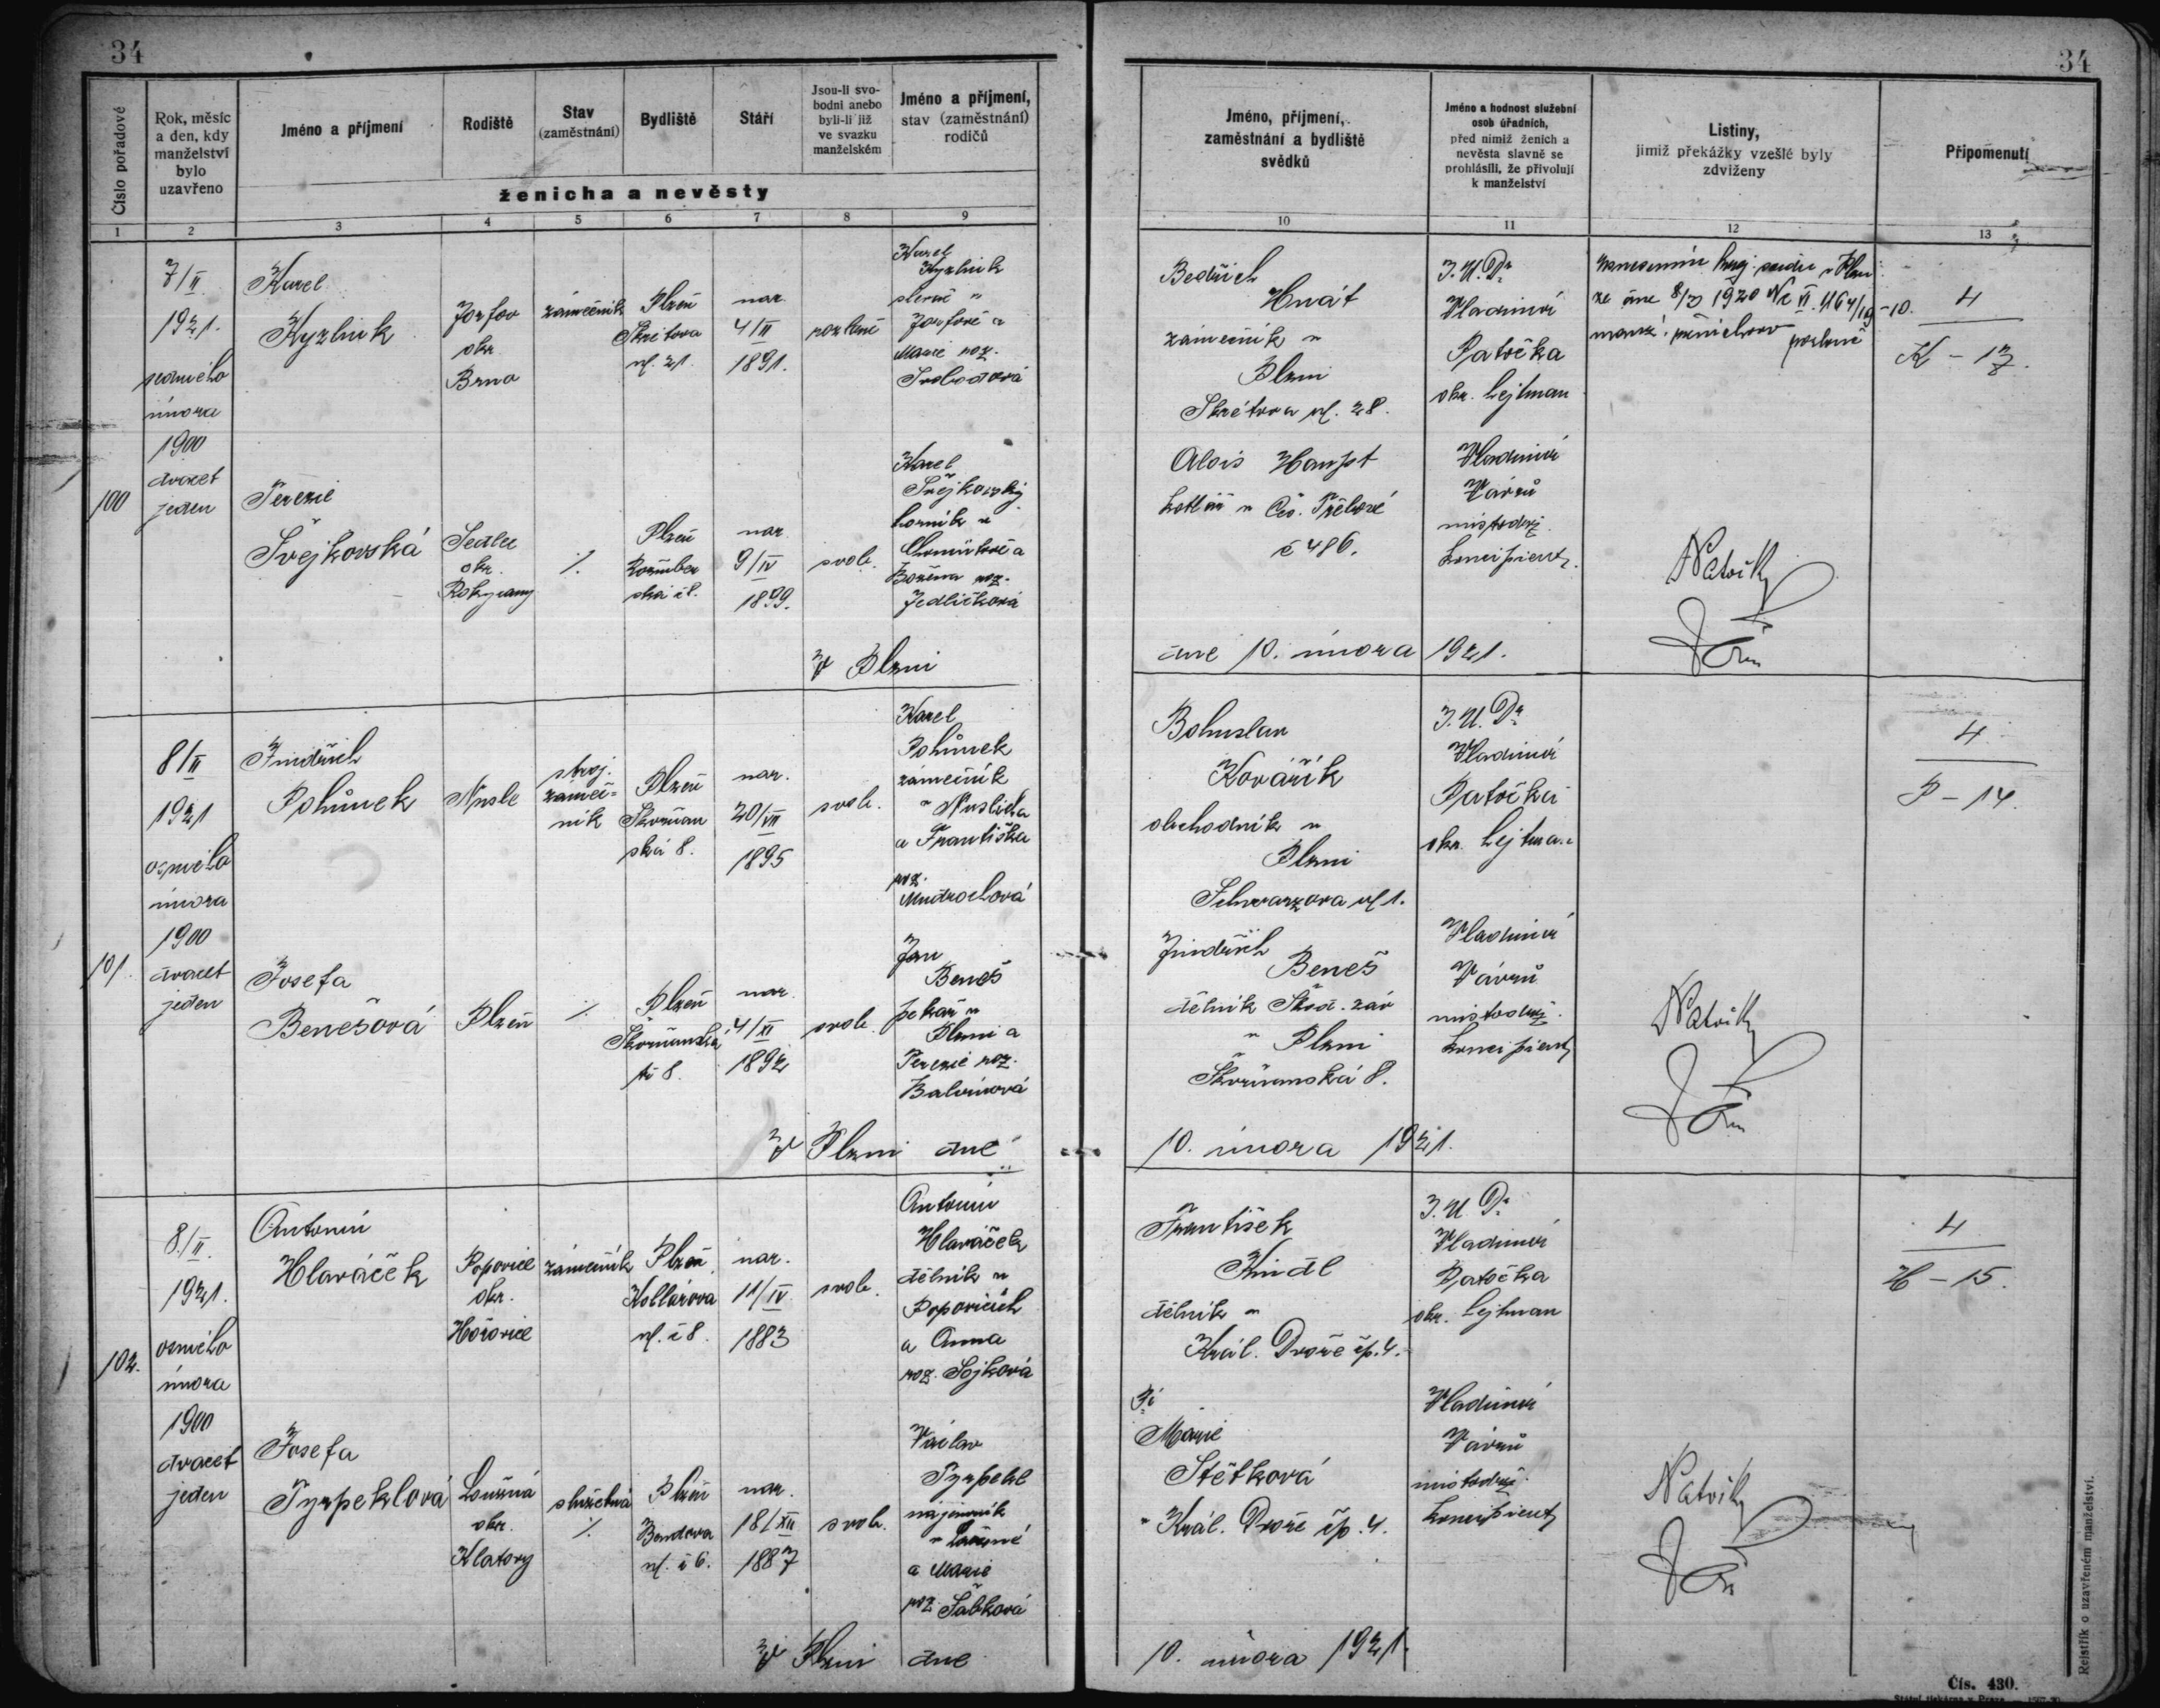 34
34
Číslo pořadové
Rok, měsíc
a den, kdy
manželství
bylo
uzavřeno
Jméno a příjmení
Rodiště
Stav
(zaměstnání)
Bydliště
Stáří
Jsou-li svo-
bodni anebo
byli-li již
ve svazku
manželském
Jméno a příjmení,
stav (zaměstnání)
rodičů
ženicha a nevěsty
Jméno, příjmení,
zaměstnání a bydliště
svědků
Jméno a hodnost služební
osob úřadních,
před nimiž ženich a
nevěsta slavně se
prohlásili, že přivolují
k manželství
Listiny,
jimiž překážky vzešlé byly
zdviženy
Připomenutí
1 2 3 4 5 6 7 8 9 10 11 12 13
100
7/II
1921.
sedmého
února
1900
dvacet
jeden
Karel
Kyzlink
okr.
Brno
zámečník
Plzeň
Skrétova
ul. 21.
nar.
4/II
1891.
Karel
Kyzlink
a
Marie roz.
Svobodová
Bedřich
Hnát
zámečník v
Plzni
Skrétova ul. 28.
J.U.Dr
Vladimír
Patočka
okr. hejtman
ze dne 1920
4
K – 13.
Terezie
Švejkovská
Sedlec
okr.
Rokycany
%
Plzeň
nar.
9/IV
1899.
svob.
Karel
Švejkovský
horník v
a
Božena roz.
Jedličková
Alois
kotlář v
č 486.
Vladimír
Vávrů
místodrž.
koncipient
V Plzni
dne 10. února 1921.
101.
8/II
1921
osmého
února
1900
dvacet
jeden
Jindřich
Pohůnek
Nusle
stroj.
zámeč=
ník
Plzeň
Skvrňan
ská 8.
nar.
20/VII
1895
svob.
Karel
Pohůnek
zámečník
v Nuslích
a Františka
roz.
Mudrochová
Bohuslav
Kovářík
obchodník v
Plzni
Schwarzova ul 1.
J.U.Dr
Vladimír
Patočka
okr. hejtman
4
P – 14.
Josefa
Benešová
Plzeň
%
Plzeň
Skvrňanská
tř 8.
nar.
4/XI
1892
svob.
Jan
Beneš
pekař v
Plzni a
Terezie roz.
Jindřich
Beneš
dělník Škod. záv
v Plzni
Skvrňanská 8.
Vladimír
Vávrů
místodrž.
koncipient
V Plzni dne
10. února 1921.
102.
8./II.
1921.
osmého
února
1900
dvacet
jeden
Antonín
Hlaváček
Popovice
okr.
Hořovice
zámečník
Plzeň
Kollárova
ul. č 8.
nar.
11/IV.
1883
svob.
Antonín
Hlaváček
dělník v
Popovicích
a Anna
roz. Sojková
František
Kindl
dělník v
Král. Dvoře čp. 4.
J.U.Dr
Vladimír
Patočka
okr. hejtman
4
H – 15.
Josefa
Tyrpeklová
okr.
Klatovy
služebná
%
Plzeň
Bendova
ul. č 6.
nar.
18/XII
1887
svob.
Václav
Tyrpekl
nájemník
a Marie
roz.
Pí
Marie
Štětková
v Král. Dvoře čp. 4.
Vladimír
Vávrů
místodrž.
koncipient
V Plzni dne
10. února 1921.
Rejstřík o uzavřeném manželství.
Čís. 430.